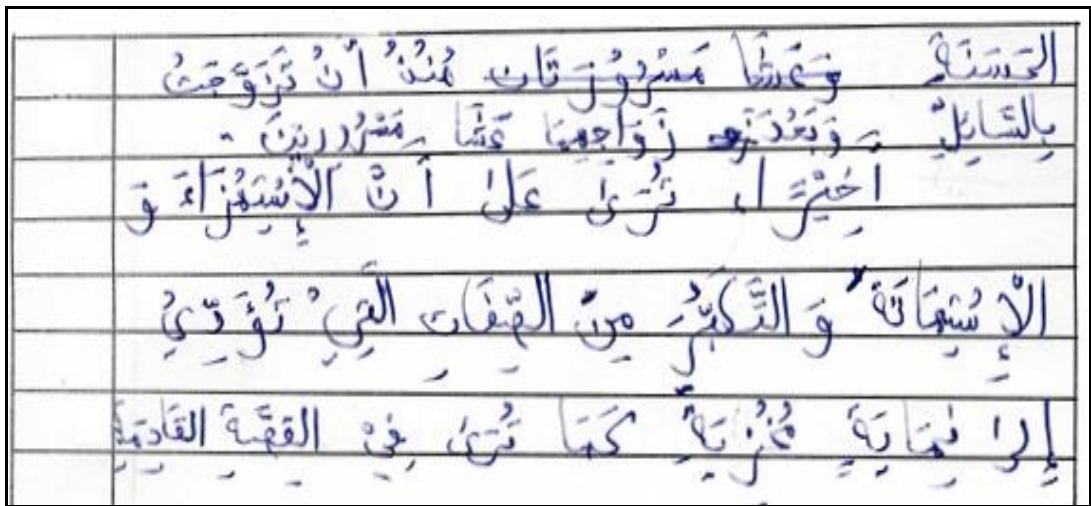 الحَسَنَةِ وَعَشَا مَسْرُوْرَتَانِ مُنْذُ أَنْ تَزَوَّجَتْ
بِالسَّائِلِ وَبَعْدَ زَوَاجِهِمَا عَشَا مَسْرُورِيْنَ.
اَخِيْرًا، نُرَى عَلَى أَنَّ الْإِسْتِهْزَاءَ وَ
الْإِسْتِهَانَةَ وَ التَّكَبُّرَ مِنَ الصِّفَاتِ الَّتِيْ تُؤَدِّيْ
إِلَا نِهَايَةٍ مُخْزِيَةٍ كَمَا نُرَى فِيْ القِصَّةِ القَادِمَةِ